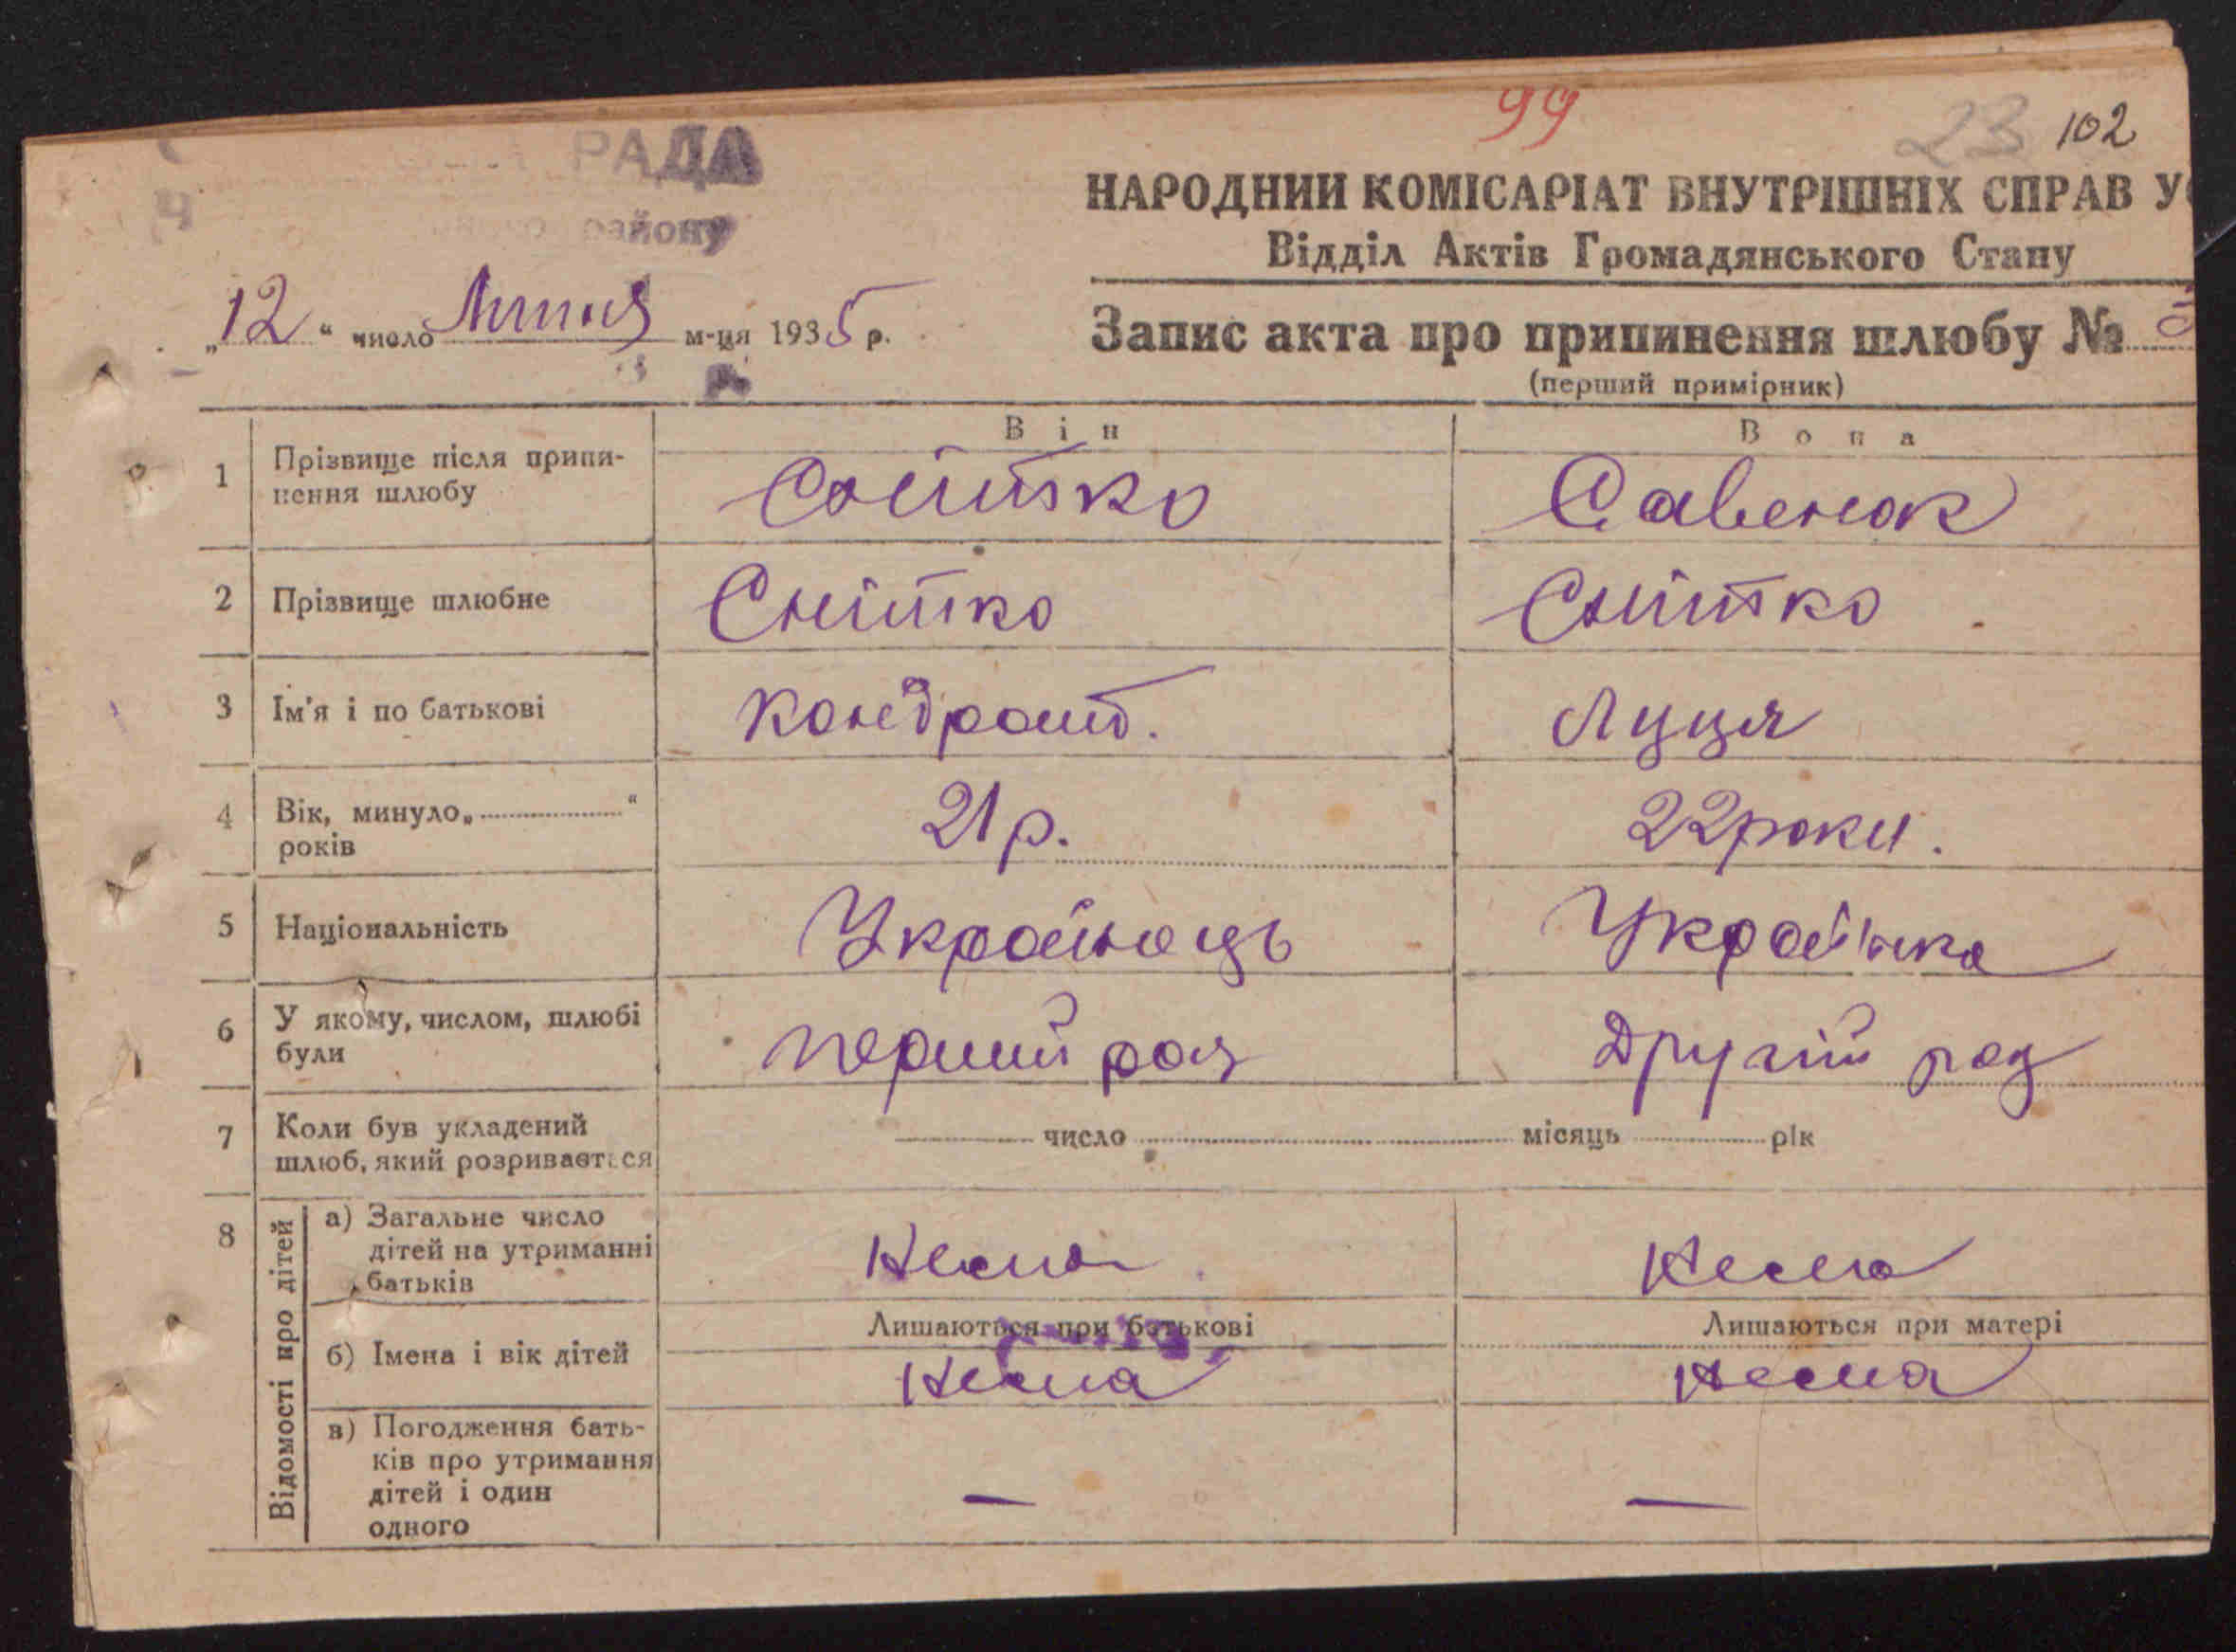 99
23 102
РАДА
району
НАРОДНИЙ КОМІСАРІАТ ВНУТРІШНІХ СПРАВ У
Відділ Актів Громадянського Стану
„12“ число Липня м-ця 1935 р.
Запис акта про припинення шлюбу №
(перший примірник)
Він Вона
1 Прізвище після припи-
нення шлюбу Снітко Савенок
2 Прізвище шлюбне Снітко Снітко
3 Ім'я і по батькові Кондрат. Луця
4 Вік, минуло „ “
років 21 р. 22 роки.
5 Національність Українець Українка
6 У якому, числом, шлюбі
були перший раз Другий раз
7 Коли був укладений
шлюб, який розривається число місяць рік
8 Відомості про дітей
а) Загальне число
дітей на утриманні
батьків Нема Нема
Лишаються при батькові Лишаються при матері
б) Імена і вік дітей Нема Нема
в) Погодження бать-
ків про утримання
дітей і один
одного — —